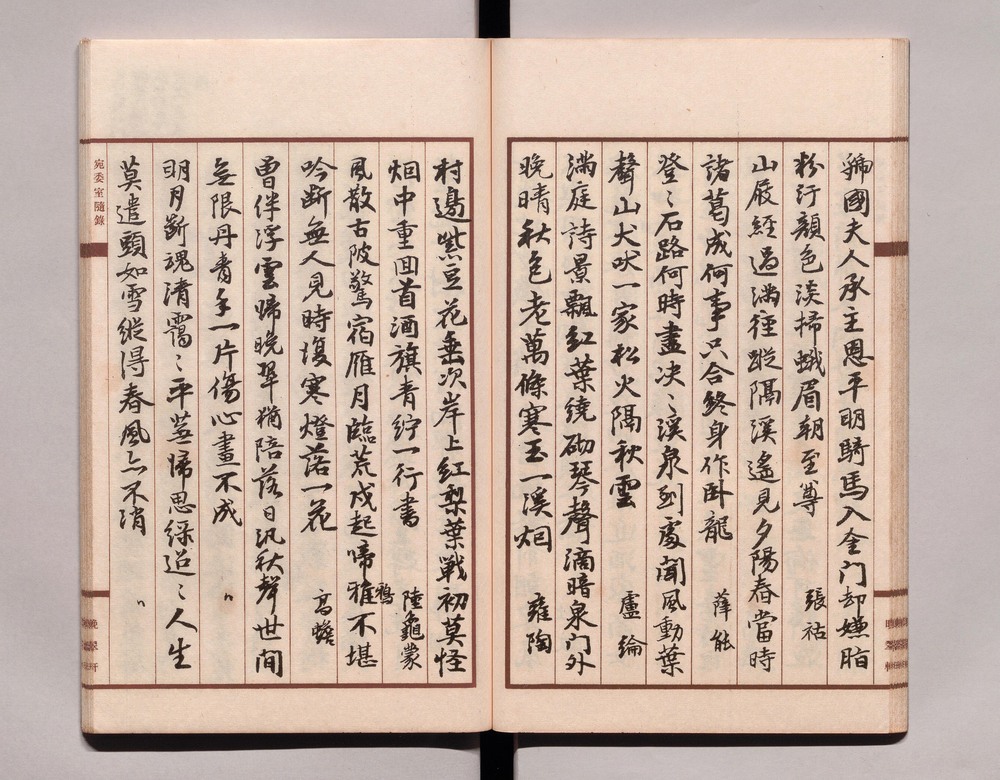 虢國夫人承主恩平明騎馬入金门却嫌脂
粉汙顏色淡掃蛾眉朝至尊 張祜
山屐經過滿徑蹤隔溪遙見夕陽舂當時
諸葛成何事只合終身作卧龍 薛能
登〻石路何時盡决〻溪泉到處闻風動葉
聲山犬吠一家松火隔秋雲 盧綸
滿庭詩景飄紅葉繞砌琴聲滴暗泉门外
晚晴秋色老萬條寒玉一溪烟 雍陶
村邊紫豆花垂次岸上紅梨葉戰初莫怪
烟中重回首酒旗青紵一行書 陸龜蒙
風散古陂驚宿雁月臨荒戍起啼雅不堪
鴉
吟斷無人見時復寒燈落一花 高蟾
曾伴浮雲歸晚翠猶陪落日汎秋聲世间
無限丹青手一片傷心畫不成 〃
明月斷魂清靄〻平蕪歸思綠迢〻人生
莫遣頭如雪縱得春風亦不消 〃
宛委室隨錄
晚翠軒